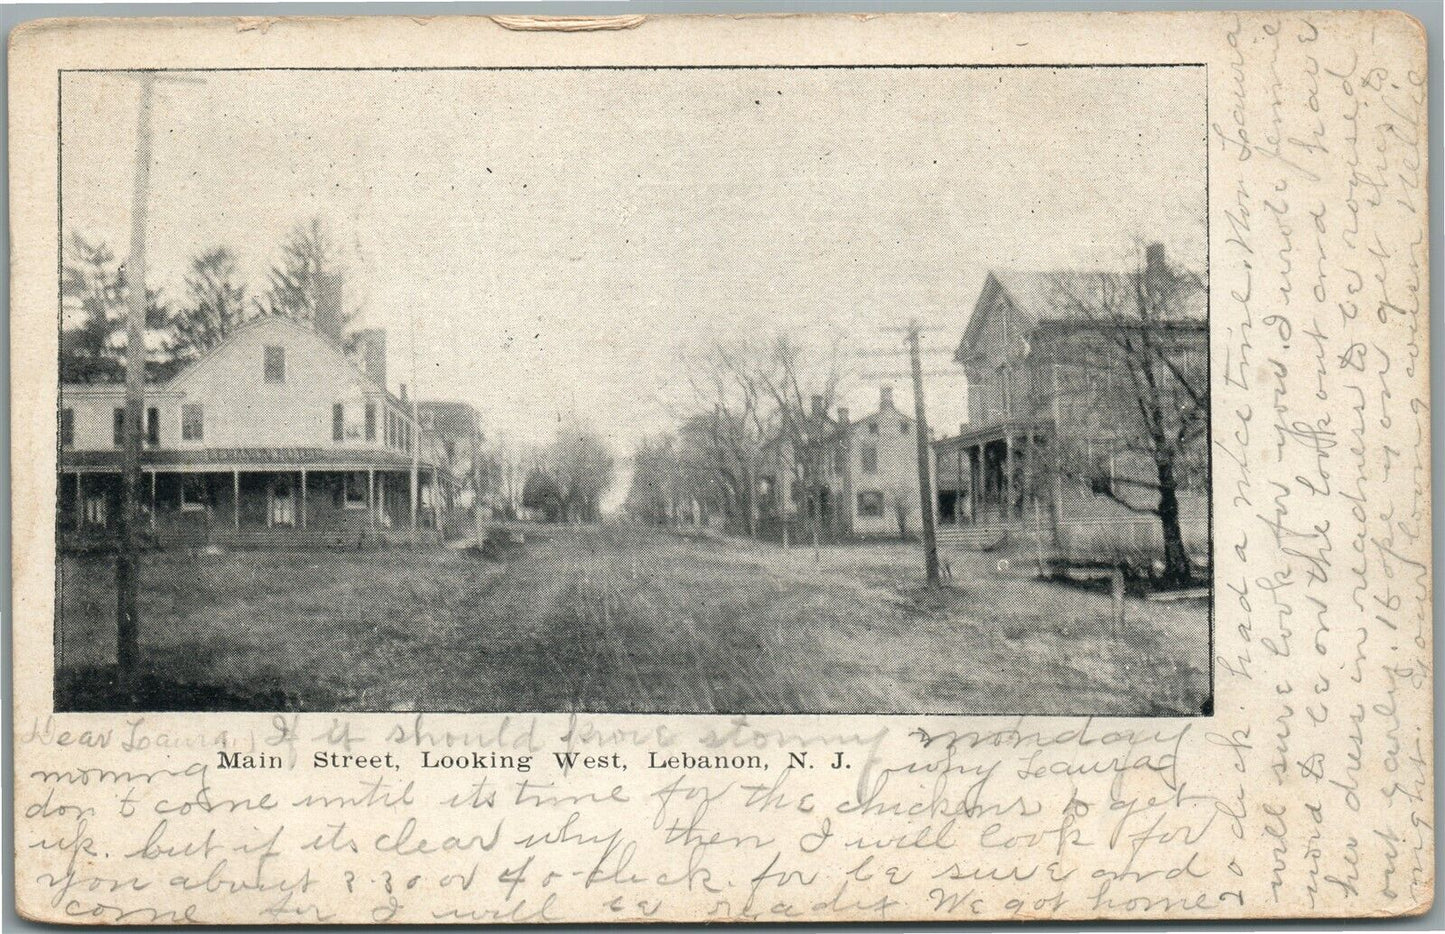 Dear Laura, If it should prove stormy monday
morning
Main Street, Looking West, Lebanon, N. J.
why Laura
don't come until its time for the chickens to get
up. but if its clear why then I will look for
you about 3-30 or 4 o-clock. for be sure and
come for I will be ready We got home
2 o clock. had a nice time. Now Laura
will sure look for you. I wrote Jennie
word to be on the look out and have
her dress in readiness to be roused
out early. I hope you get this to-
night. Your loving cousin Nellie